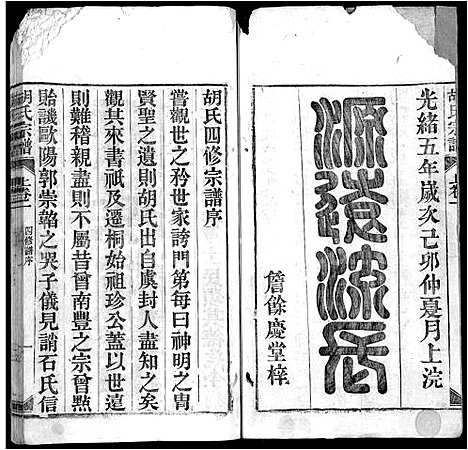 胡氏宗譜
上卷一
光緒五年歲次己卯仲夏月上浣
源遠流長
詹餘慶堂梓
胡氏四修宗譜序
嘗觀世之矜世家誇門第每曰神明之冑
賢聖之遺則胡氏出自虞封人盡知之矣
觀其來書祇及遷桐始祖珍公蓋以世遠
則難稽親盡則不屬昔曾南豐之宗曾點
貽譏歐陽郭崇韜之哭子儀見誚石氏信
胡氏宗譜
上卷一
四修譜序
一